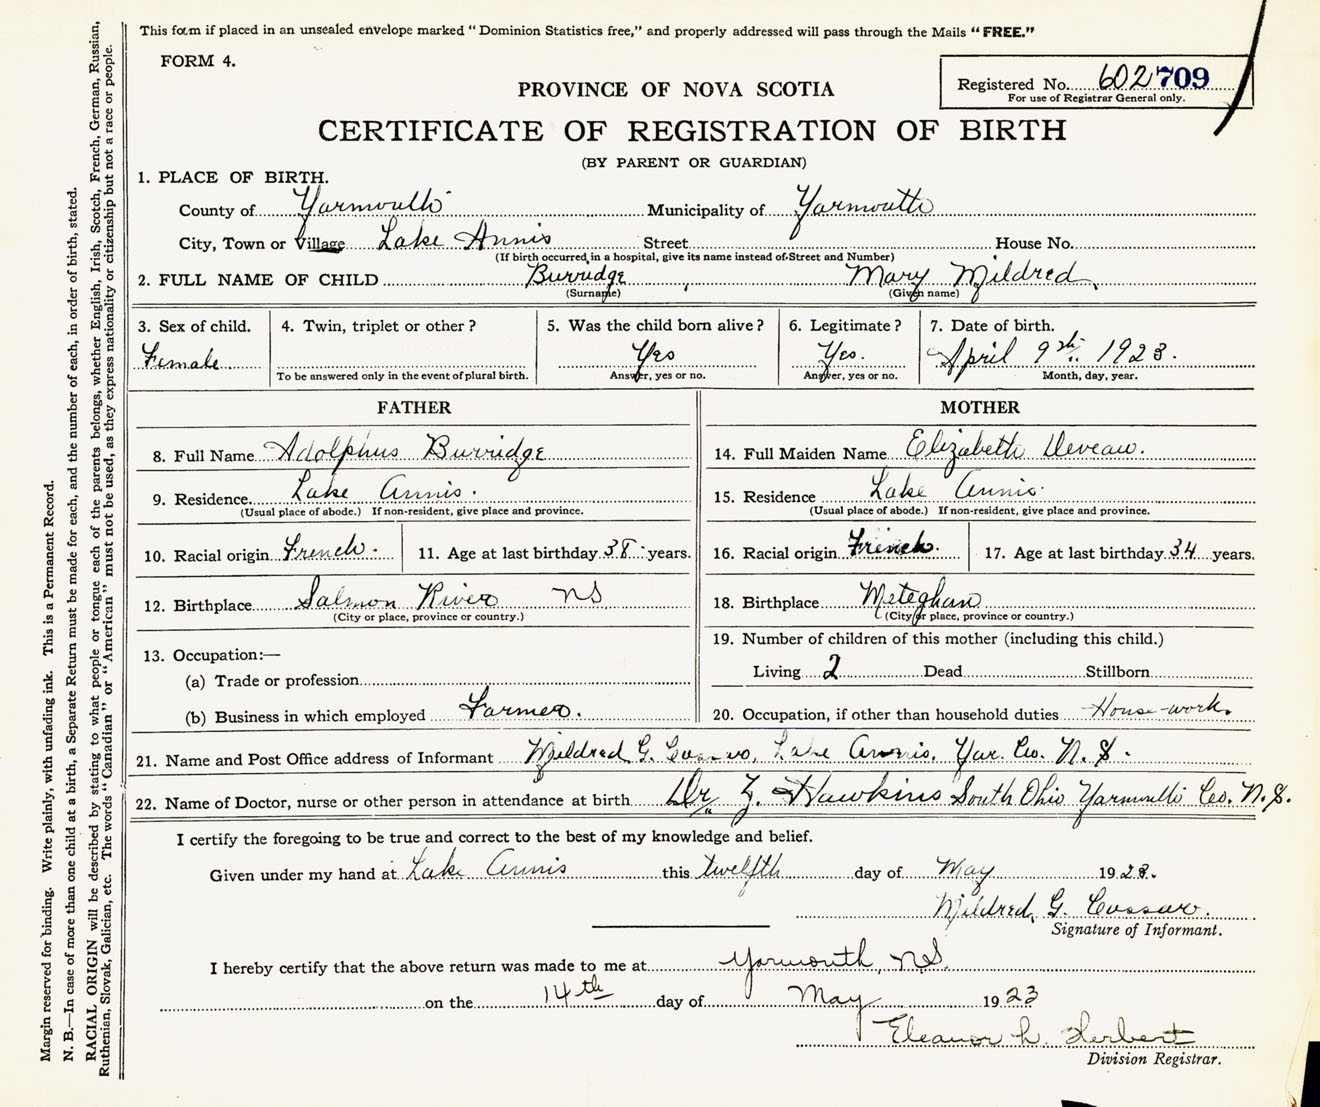 This form if placed in an unsealed envelope marked "Dominion Statistics free," and properly addressed will pass through the Mails "FREE."
FORM 4.
Registered No. 602709
For use of Registrar General only.
PROVINCE OF NOVA SCOTIA
CERTIFICATE OF REGISTRATION OF BIRTH
(BY PARENT OR GUARDIAN)
1. PLACE OF BIRTH.
County of Yarmouth Municipality of Yarmouth
City, Town or Village Lake Annis Street House No.
(If birth occurred in a hospital, give its name instead of Street and Number)
2. FULL NAME OF CHILD Burridge, Mary Mildred
(Surname) (Given name)
3. Sex of child. 4. Twin, triplet or other? 5. Was the child born alive? 6. Legitimate? 7. Date of birth.
Female Yes Yes. April 9th 1923.
To be answered only in the event of plural birth. Answer, yes or no. Answer, yes or no. Month, day, year.
FATHER MOTHER
8. Full Name Adolphus Burridge 14. Full Maiden Name Elizabeth Deveau.
9. Residence Lake Annis. 15. Residence Lake Annis.
(Usual place of abode.) If non-resident, give place and province. (Usual place of abode.) If non-resident, give place and province.
10. Racial origin French. 11. Age at last birthday 38 years. 16. Racial origin French. 17. Age at last birthday 34 years.
12. Birthplace Salmon River NS 18. Birthplace Meteghan
(City or place, province or country.) (City or place, province or country.)
19. Number of children of this mother (including this child.)
13. Occupation:—
Living 2 Dead Stillborn
(a) Trade or profession
(b) Business in which employed Farmer. 20. Occupation, if other than household duties House-work.
21. Name and Post Office address of Informant Mildred G. Lake Annis, Yar. Co. N.S.
22. Name of Doctor, nurse or other person in attendance at birth Dr Z. Hawkins South Ohio Yarmouth Co. N.S.
I certify the foregoing to be true and correct to the best of my knowledge and belief.
Given under my hand at Lake Annis this twelfth day of May 1923.
Mildred G.
Signature of Informant.
I hereby certify that the above return was made to me at Yarmouth, N.S.
on the 14th day of May 1923
Eleanor L. Herbert
Division Registrar.
Margin reserved for binding. Write plainly, with unfading ink. This is a Permanent Record.
N. B.—In case of more than one child at a birth, a Separate Return must be made for each, and the number of each, in order of birth, stated.
RACIAL ORIGIN will be described by stating to what people or tongue each of the parents belongs, whether English, Irish, Scotch, French, German, Russian,
Ruthenian, Slovak, Galician, etc. The words "Canadian" or "American" must not be used, as they express nationality or citizenship but not a race or people.